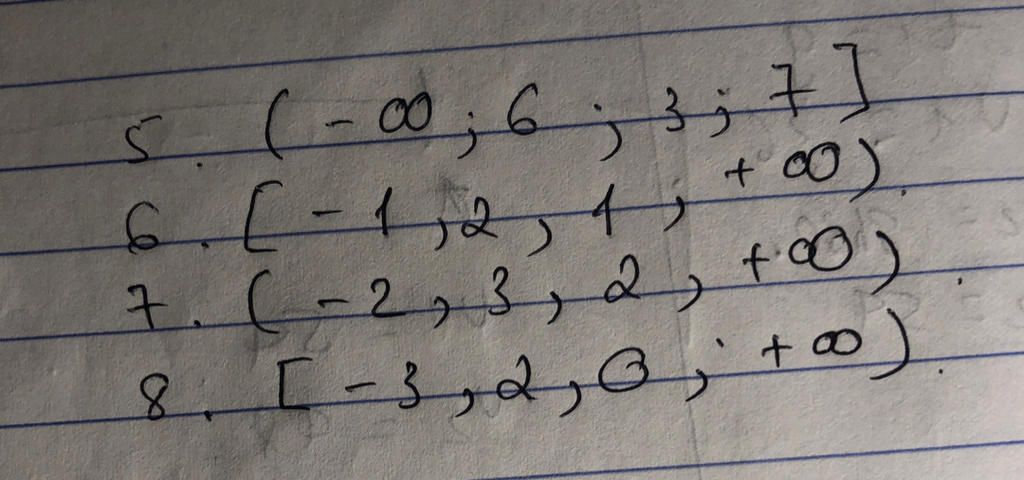 5. (-∞; 6; 3; 7]
6. [-1, 2, 1; +∞).
7. (-2, 3, 2, +∞).
8. [-3, 2, 0; +∞).